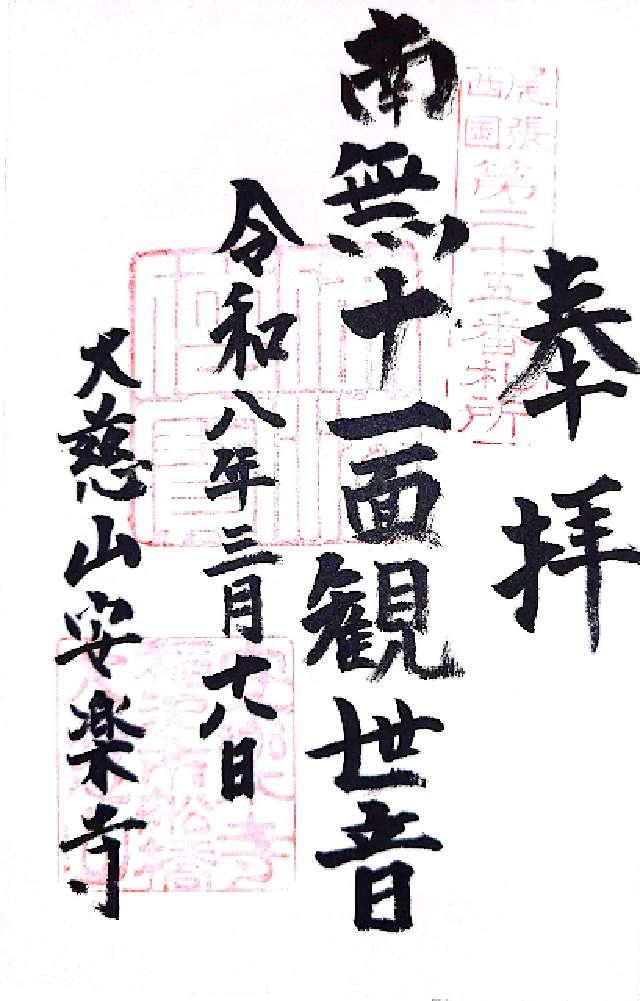 奉拝
尾張
西国
第二十五番札所
南無十一面観世音
令和八年三月十八日
大慈山安楽寺